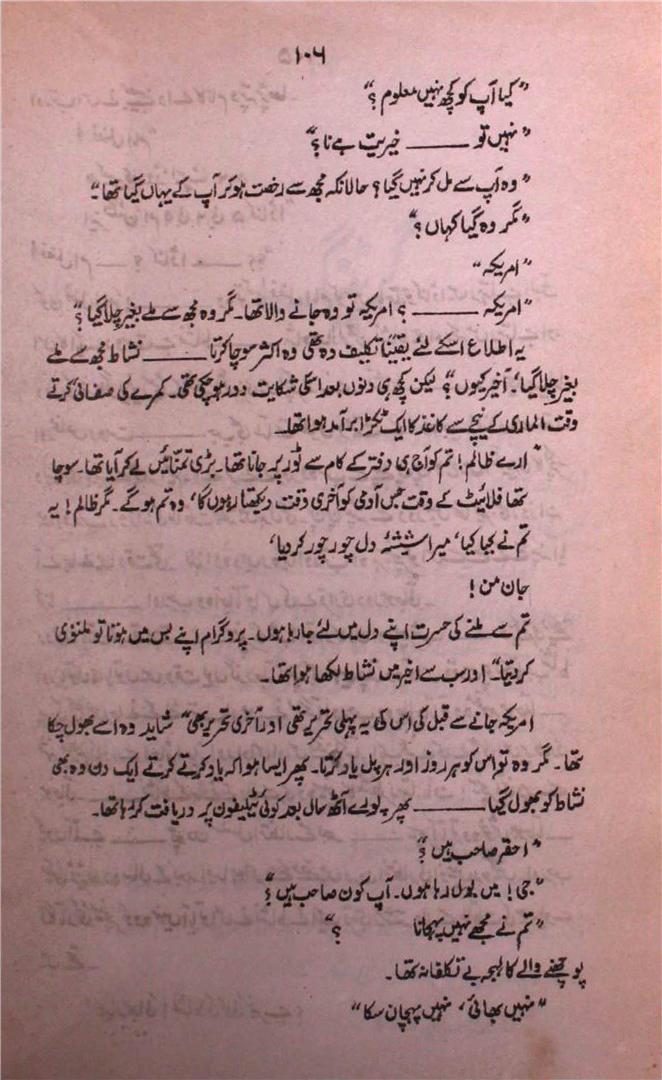 ۱۰۶
"کیا آپ کو کچھ نہیں معلوم؟"
"نہیں تو ——— خیریت ہے نا؟"
"وہ آپ سے مل کر نہیں گیا؟ حالانکہ مجھ سے رخصت ہو کر آپ کے یہاں گیا تھا۔"
"مگر وہ گیا کہاں؟"
"امریکہ"
"امریکہ ——— ؟ امریکہ تو وہ جانے والا تھا۔ مگر وہ مجھ سے ملے بغیر چلا گیا؟"
یہ اطلاع اسکے لئے یقیناً تکلیف دہ تھی وہ اکثر سوچا کرتا ——— نشاط مجھ سے ملے
بغیر چلا گیا، آخیر کیوں"؟ لیکن کچھ ہی دنوں بعد اسکی شکایت دور ہو چکی تھی۔ کمرے کی صفائی کرتے
وقت الماری کے نیچے سے کاغذ کا ایک ٹکڑا برآمد ہوا تھا۔
"ارے ظالم! تم کو آج ہی دفتر کے کام سے ٹور پر جانا تھا۔ بڑی تمنائیں لے کر آیا تھا۔ سوچا
تھا فلائیٹ کے وقت جس آدمی کو آخری وقت دیکھتا رہوں گا، وہ تم ہو گے۔ مگر ظالم! یہ
تم نے کیا کیا، میرا شیشۂ دل چور چور کر دیا،
جان من!
تم سے ملنے کی حسرت اپنے دل میں لئے جا رہا ہوں۔ پروگرام اپنے بس میں ہوتا تو ملتوی
کر دیتا۔" اور سب سے اخیر میں نشاط لکھا ہوا تھا۔
امریکہ جانے سے قبل کی اس کی یہ پہلی تحریر تھی اور آخری تحریر بھی" شاید وہ اسے بھول چکا
تھا۔ مگر وہ تو اس کو ہر روز اور ہر پل یاد کرتا۔ پھر ایسا ہوا کہ یاد کرتے کرتے ایک دن وہ بھی
نشاط کو بھول گیا ——— پھر پورے آٹھ سال بعد کوئی ٹیلیفون پر دریافت کر رہا تھا۔
"احقر صاحب ہیں؟"
"جی! میں بول رہا ہوں۔ آپ کون صاحب ہیں؟"
"تم نے مجھے نہیں پہچانا ؟"
پوچھنے والے کا لہجہ بے تکلفانہ تھا۔
"نہیں بھائی، نہیں پہچان سکا"